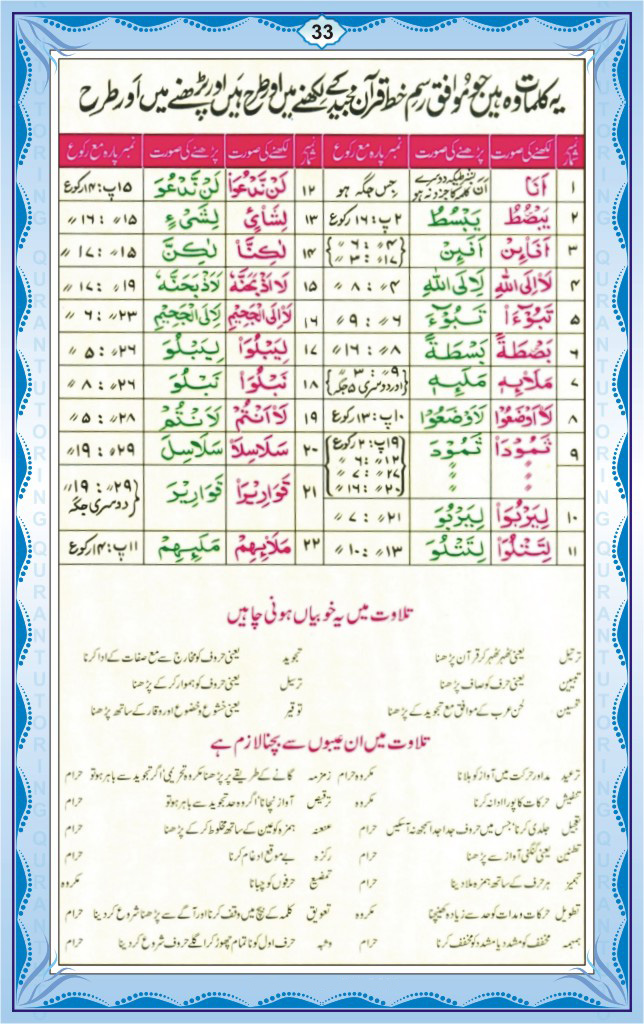 33
یہ کلمات وہ ہیں جو موافق رسم خط قرآن مجید کے لکھنے میں اور طرح ہیں اور پڑھنے میں اور طرح
نمبر شمار لکھنے کی صورت پڑھنے کی صورت نمبر پارہ مع رکوع نمبر شمار لکھنے کی صورت پڑھنے کی صورت نمبر پارہ مع رکوع
۱ اَنَا اَنَ جس جگہ ہو ۱۲ لَنْ تَّدْعُوَا۠ لَنْ تَّدْعُوَ ۱۵پ: ۱۴رکوع
۲ يَبْصُۜطُ يَبْسُطُ ۲پ: ۱۶رکوع ۱۳ لِشَایْءٍ لِشَیْءٍ ۱۵〃: ۱۶〃
۳ اَفَا۠ئِنْ اَفَئِنْ ۴〃: ۶〃 ۱۷〃: ۳〃 ۱۴ لٰكِنَّا۠ لٰكِنَّ ۱۵〃: ۱۷〃
۴ لَاۡاِلَى اللهِ لَاِلَى اللهِ ۴〃: ۸〃 ۱۵ لَاۡاَذْبَحَنَّهٗ لَاَذْبَحَنَّهٗ ۱۹〃: ۱۷〃
۵ تَبُوْٓءَا۠ تَبُوْٓءَ ۶〃: ۹〃 ۱۶ لَاۡاِلَى الْجَحِيْمِ لَاِلَى الْجَحِيْمِ ۲۳〃: ۶〃
۶ بَصْۜطَةً بَسْطَةً ۸〃: ۱۶〃 ۱۷ لِيَبْلُوَا۠ لِيَبْلُوَ ۲۶〃: ۵〃
۷ مَلَا۠ئِهٖ مَلَئِهٖ ۹〃: ۳〃 اور دوسری ۵ جگہ ۱۸ نَبْلُوَا۠ نَبْلُوَ ۲۶〃: ۸〃
۸ لَاۡاَوْضَعُوْا لَاَوْضَعُوْا ۱۰پ: ۱۳رکوع ۱۹ لَاۡاَنْتُمْ لَاَنْتُمْ ۲۸〃: ۵〃
۹ ثَمُوْدَا۠ ثَمُوْدَ ۱۹پ: ۲رکوع ۱۲〃: ۶〃 ۲۷〃: ۷〃 ۲۰〃: ۱۶〃 ۲۰ سَلَاسِلَا۠ سَلَاسِلَ ۲۹〃: ۱۹〃
۲۱ قَوَارِيْرَا۠ قَوَارِيْرَ ۲۹〃: ۱۹〃 دوسری جگہ
۱۰ لِيَرْبُوَا۠ لِيَرْبُوَ ۲۱〃: ۷〃
۱۱ لِتَتْلُوَا۠ لِتَتْلُوَ ۱۳〃: ۱۰〃 ۲۲ مَلَا۠ئِهِمْ مَلَئِهِمْ ۱۱پ: ۱۴رکوع
تلاوت میں یہ خوبیاں ہونی چاہیں
ترتیل یعنی ٹھہر ٹھہر کر قرآن پڑھنا تجوید یعنی حروف کو مخارج سے مع صفات کے ادا کرنا
تبیین یعنی حرف کو صاف پڑھنا ترسیل یعنی حروف کو ہموار کر کے پڑھنا
تحسین لحن عرب کے موافق مع تجوید کے پڑھنا توقیر یعنی خشوع و خضوع اور وقار کے ساتھ پڑھنا
تلاوت میں ان عیبوں سے بچنا لازم ہے
ترعید مد اور حرکت میں آواز کو ہلانا مکروہ حرام زمزمہ گانے کے طریقے پر پڑھنا مکروہ تحریمی اگر تجوید سے باہر ہو تو حرام
حرکات کا پورا ادا نہ کرنا مکروہ ترقیص آواز نچانا اگر وہ حد تجوید سے باہر ہو تو حرام
جلدی کرنا جس میں حروف جدا جدا سمجھ نہ آسکیں حرام عنعنہ ہمزہ کو عین کے ساتھ مخلوط کر کے پڑھنا حرام
تطنین یعنی گنگنی آواز سے پڑھنا حرام رکزہ بے موقع ادغام کرنا حرام
ہر حرف کے ساتھ ہمزہ ملا دینا حرام تمضیغ حرفوں کو چبانا مکروہ
تطویل حرکات و مدات کو حد سے زیادہ کھینچنا مکروہ تعویق کلمہ کے بیچ میں وقف کرنا اور آگے سے پڑھنا شروع کر دینا حرام
ہمہمہ مخفف کو مشدد یا مشدد کو مخفف کرنا حرام وثبہ حرف اول کو نا تمام چھوڑ کر اگلے حروف شروع کر دینا حرام
QURAN TUTORING QURAN TUTORING